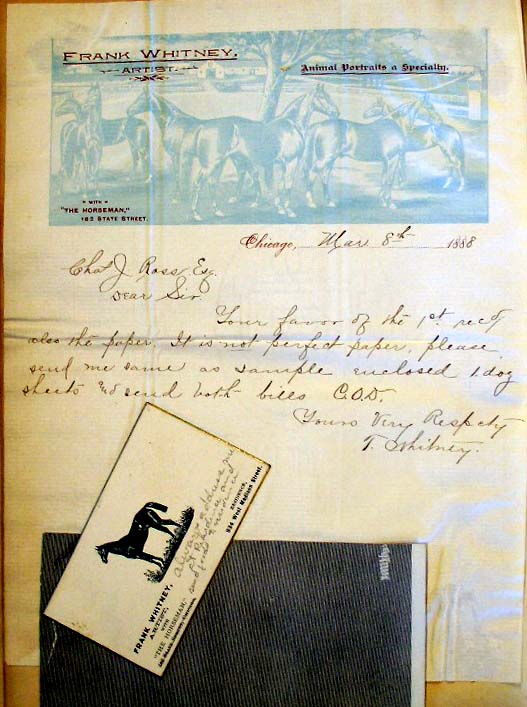 FRANK WHITNEY,
ARTIST.
Animal Portraits a Specialty.
WITH
"THE HORSEMAN,"
182 STATE STREET.
Chicago, Mar 8th 1888
Chas J. Ross Esq.
Dear Sir
Your favor of the 1st. recd
also the paper. It is not perfect paper, please
send me same as sample enclosed 1 doz
sheets & send both bills C.O.D.
Yours Very Respcty
F. Whitney.
FRANK WHITNEY,
ARTIST,
WITH
"THE HORSEMAN,"
RESIDENCE,
834 West Madison Street.
Always address me
at Residence and